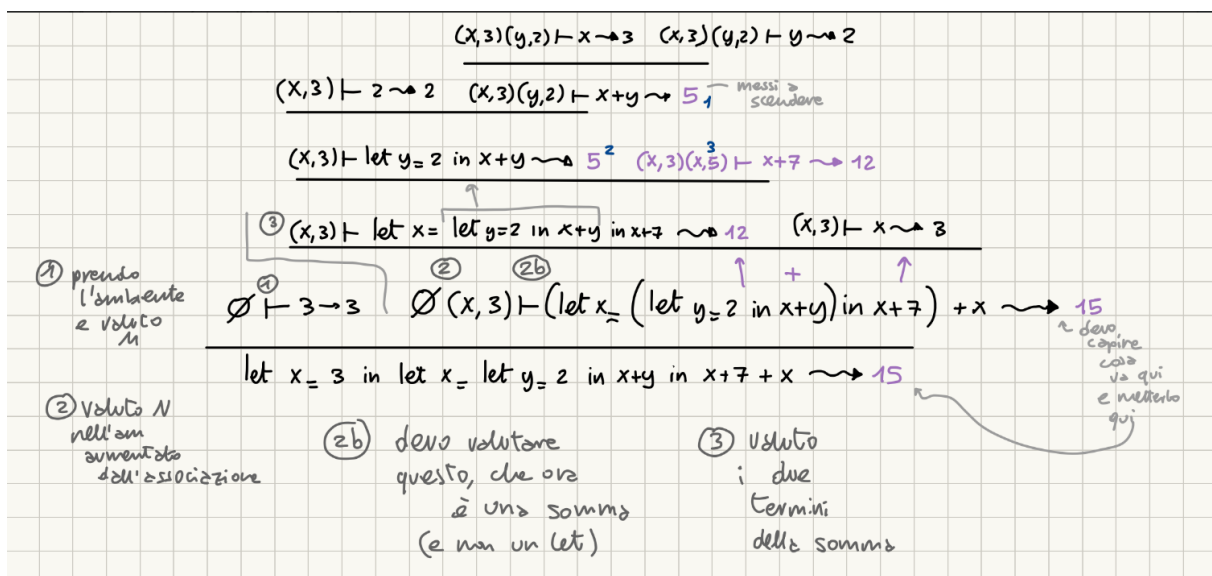 (x,3)(y,2) ⊢ x ⇝ 3 (x,3)(y,2) ⊢ y ⇝ 2
(x,3) ⊢ 2 ⇝ 2 (x,3)(y,2) ⊢ x+y ⇝ 5 1 messi a
scendere
(x,3) ⊢ let y= 2 in x+y ⇝ 5 2 (x,3)(x,5) 3 ⊢ x+7 ⇝ 12
③ (x,3) ⊢ let x= let y=2 in x+y in x+7 ⇝ 12 (x,3) ⊢ x ⇝ 3
① prendo
l'ambiente
e valuto
M
① ② ②b ↑ + ↑
∅ ⊢ 3 → 3 ∅ (x,3) ⊢ (let x= (let y=2 in x+y) in x+7) + x ⇝ 15
devo
capire
cosa
va qui
e metterlo
qui
let x= 3 in let x= let y= 2 in x+y in x+7 + x ⇝ 15
② valuto N
nell'am
aumentato
dall'associazione
②b devo valutare
questo, che ora
è una somma
(e non un let)
③ valuto
i due
termini
della somma